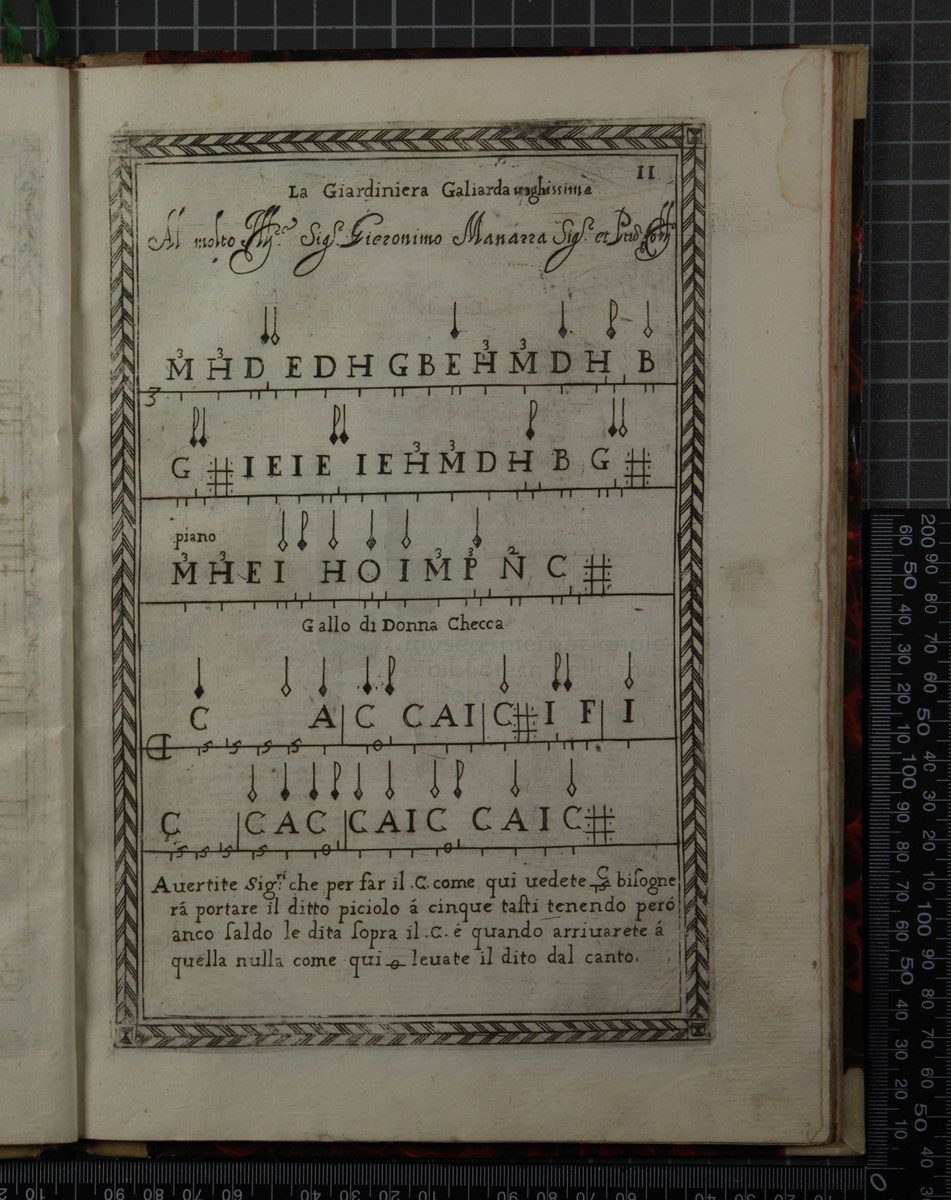 11
La Giardiniera Galiarda vaghissima
Al molto Sig.r Gieronimo Manarra Sig.r et
3 3 3 3
M H D E D H G B E H M D H B
3
3 3
G # I E I E I E H M D H B G #
piano
3 3 3 3 2
M H E I H O I M P N C #
Gallo di Donna Checca
C A | C C A I | C # I F | I
5 5 5 5 5 0
C | C A C | C A I C C A I C #
5 5 5 5 0 0
Auertite Sig.ri che per far il .C. come qui uedete C 5 biſogne
rá portare il ditto piciolo á cinque taſti tenendo peró
anco ſaldo le dita ſopra il .C. é quando arriuarete á
quella nulla come qui 0 leuate il dito dal canto.
200 90 80 70 60 50 40 30 20 10 100 90 80 70 60 50 40 30 20 10 100 90 80 70 60 50 40
60 50 40 30 20 10 100 90 80 70 60 50 40 30 20 10 100 90 80 70 60 50 40 30 20 10 0